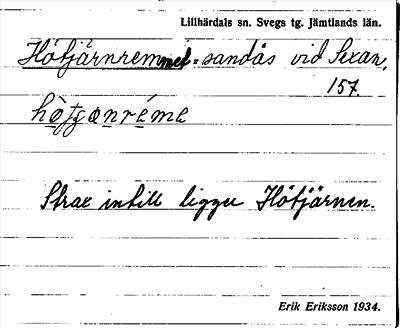 Lillhärdals sn. Svegs tg. Jämtlands län.
Hötjärnremmet = sandås vid Sexan.
157.
Strax intill ligger Hötjärnen.
Erik Eriksson 1934.